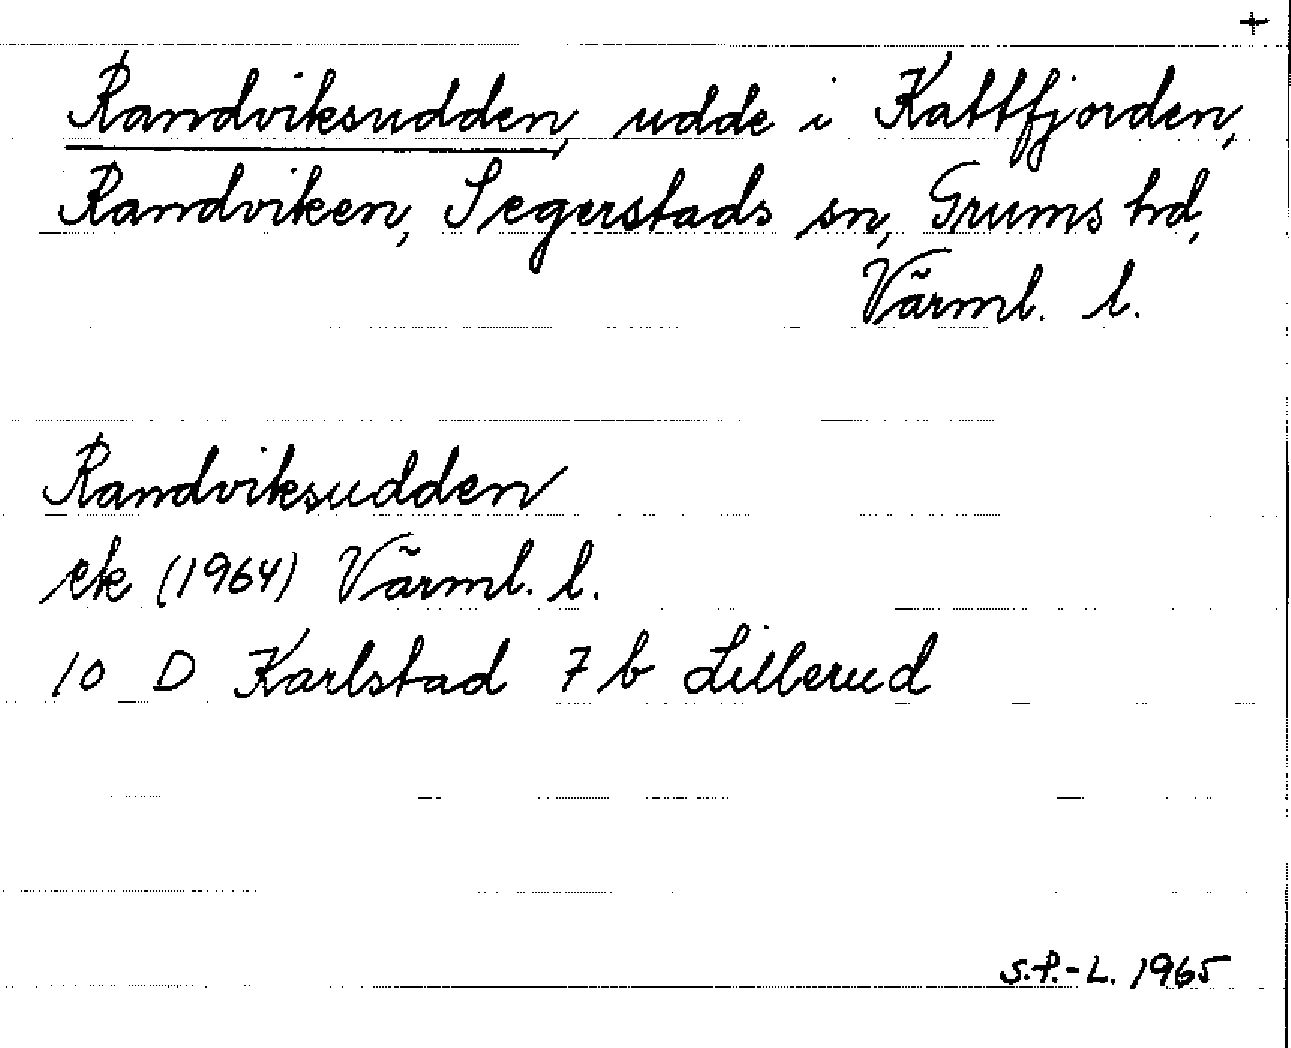 +
Randviksudden, udde i Kattfjorden,
Randviken, Segerstads sn, Grums hd,
Värml. l.
Randviksudden
ek (1964) Värml. l.
10 D Karlstad 7 b Lillerud
S.P.-L. 1965